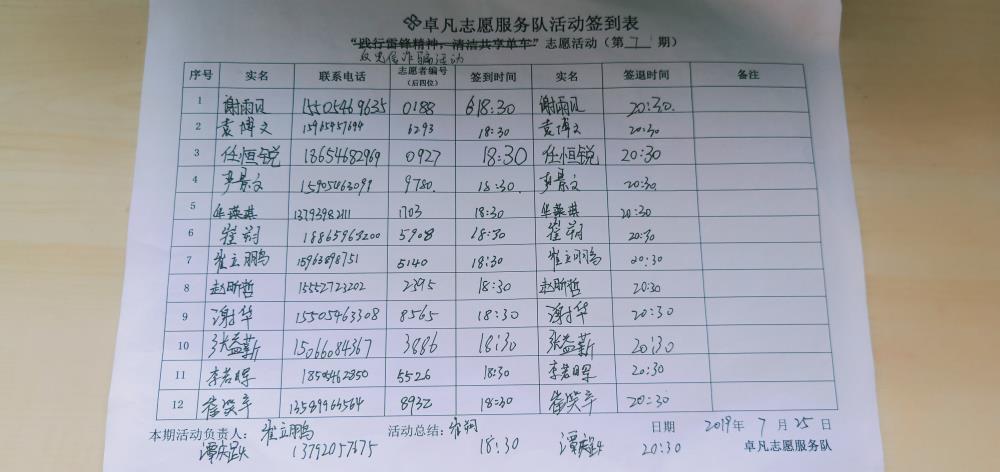 卓凡志愿服务队活动签到表
“践行雷锋精神，清洁共享单车”志愿活动（第 7 期）
反电信诈骗活动
序号 实名 联系电话 志愿者编号（后四位） 签到时间 实名 签退时间 备注
1 15505469635 0188 18:30 20:30
2 袁博文 15965457694 6293 18:30 袁博文 20:30
3 任恒锐 18654682969 0927 18:30 任恒锐 20:30
4 15905463099 9780 18:30 20:30
5 13793982111 1703 18:30 20:30
6 崔朔 18865963200 5908 18:30 崔朔 20:30
7 崔立鹏 15963898751 5140 18:30 崔立鹏 20:30
8 赵昕哲 15552723202 2395 18:30 赵昕哲 20:30
9 谢华 15505463308 8565 18:30 谢华 20:30
10 张益新 15066084367 3886 18:30 张益新 20:30
11 李若晖 18505462850 5526 18:30 李若晖 20:30
12 崔笑辛 13589963564 8932 18:30 崔笑辛 20:30
本期活动负责人：崔立鹏 活动总结：崔朔 日期 2019年 7 月 25 日
13792057675 18:30 20:30 卓凡志愿服务队